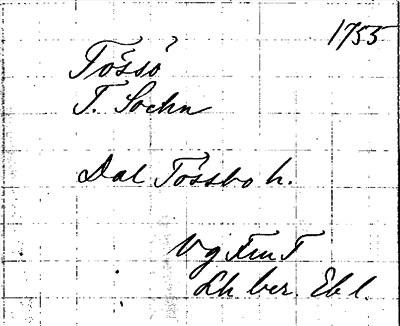 1755
Tössö
T. Sochn
Dal Tössbo h.
Vg Fm T
Lh ber. Ebl.